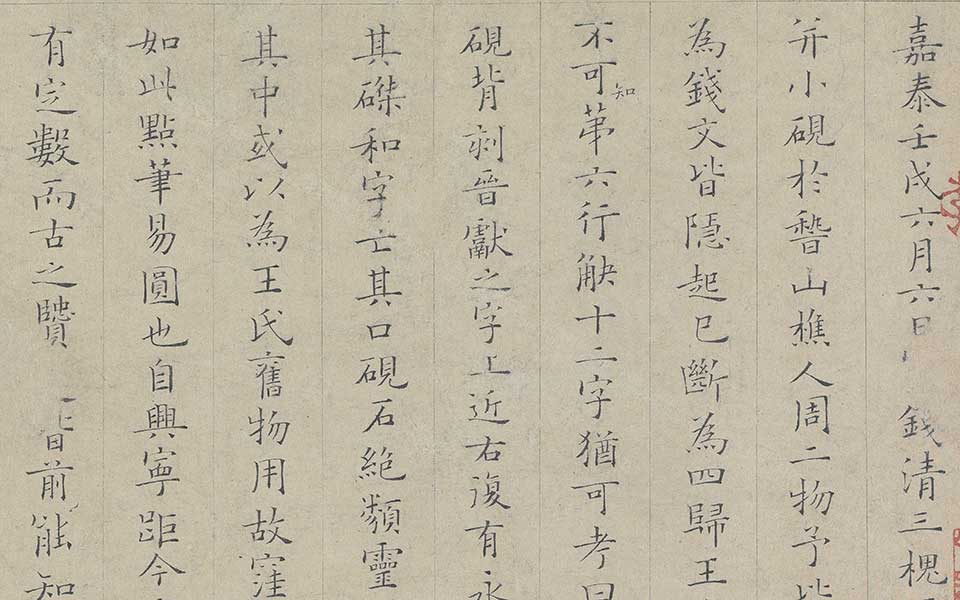 嘉泰壬戌六月六日 錢清三槐
并小硯於嵇山樵人周二物予
為錢文皆隱起已斷為四歸王
不可知第六行缺十二字猶可考曰
硯背刻晉獻之字上近右復有永
其磔和字亡其口硯石絶類靈
其中或以為王氏舊物用故窪
如此點筆易圓也自興寧距今
有定數而古之賢 昔前能知